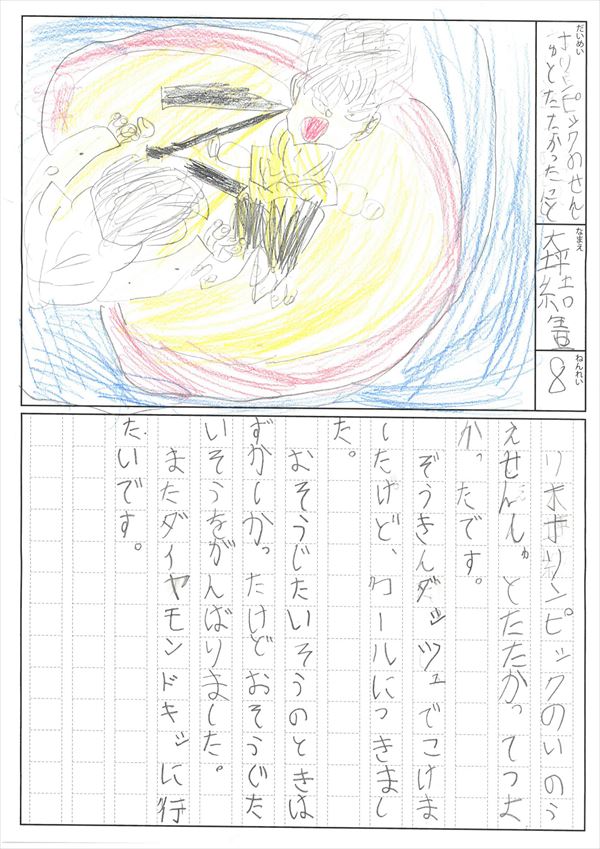 だいめい
オリンピックのせんし
ゅとたたかったこと
なまえ
大坪結
ねんれい
8
リオオリンピックのいのう
えせんしゅとたたかってつよ
かったです。
ぞうきんダッシュでこけま
したけど、ゴールにつきまし
た。
おそうじたいそうのときは
ずかしかったけどおそうじた
いそうをがんばりました。
またダイヤモンドキッに行
たいです。